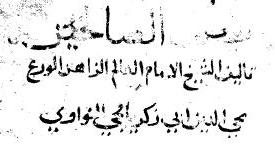 الصالحين
تاليف الشيخ الامام العالم الزاهد الورع
محي الدين ابي زكريا يحيي النواوي